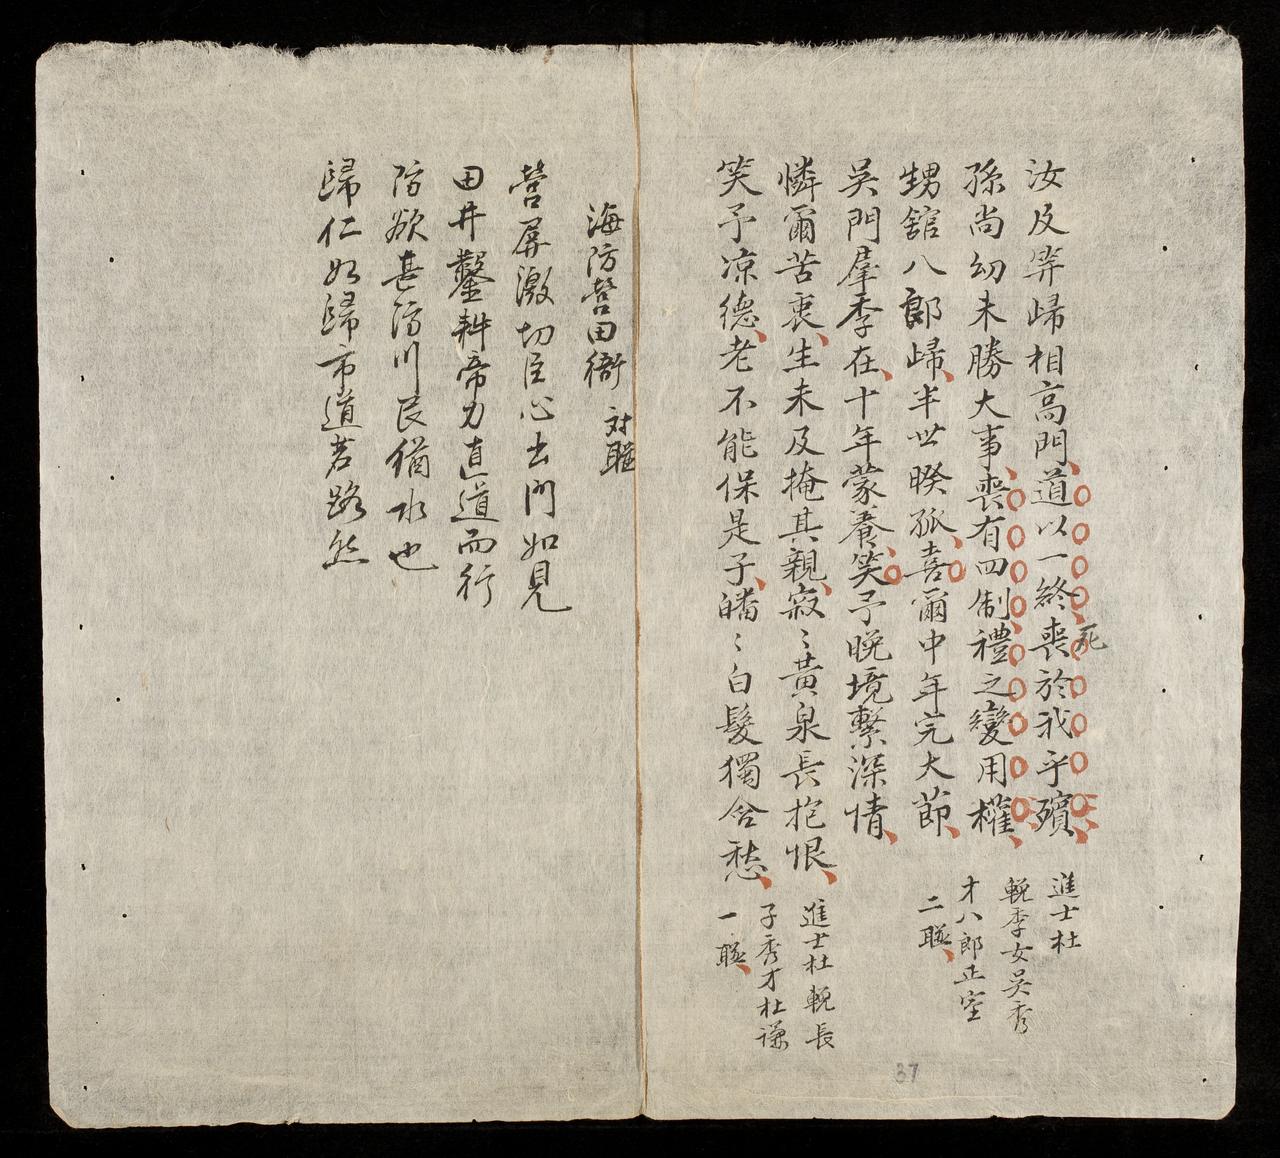 汝及笄歸相高門道以一終喪於我乎殯
死
孫尚幼未勝大事喪有四制禮之變用權
甥舘八郎歸半世暌孤喜爾中年完大節
進士杜
輓季女吳秀
才八郎正室
二聮
吳門羣季在十年蒙養笑予晚境繫深情
憐爾苦衷生未及掩其親寂〻黃泉長抱恨
笑予凉德老不能保是子皤〻白髮獨含愁
進士杜輓長
子秀才杜謙
一聮
海防營田衙 対聮
營屏激切臣心去門如見
田井鑿耕帝力直道而行
防欲甚防川民猶水也
歸仁如歸市道若路然
37